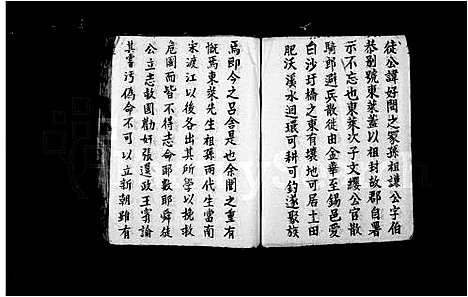 徒公諱好問之冢孫祖謙公字伯
恭別號東萊蓋以祖封故郡自署
示不忘也東萊次子文纓公官散
騎郎避兵散徙由金華至錫邑愛
白沙圩橋之東有壤地可居土田
肥沃溪水迴環可耕可釣遂聚族
焉即今之呂舍是也余聞之重有
慨焉東萊先生祖孫兩代生當南
宋渡江以後各出其所學以挽救
危國而皆不得志命耶數耶舜徒
公立志救國勸奸張邊政王實論
其當污偽命不可以立新朝雖有